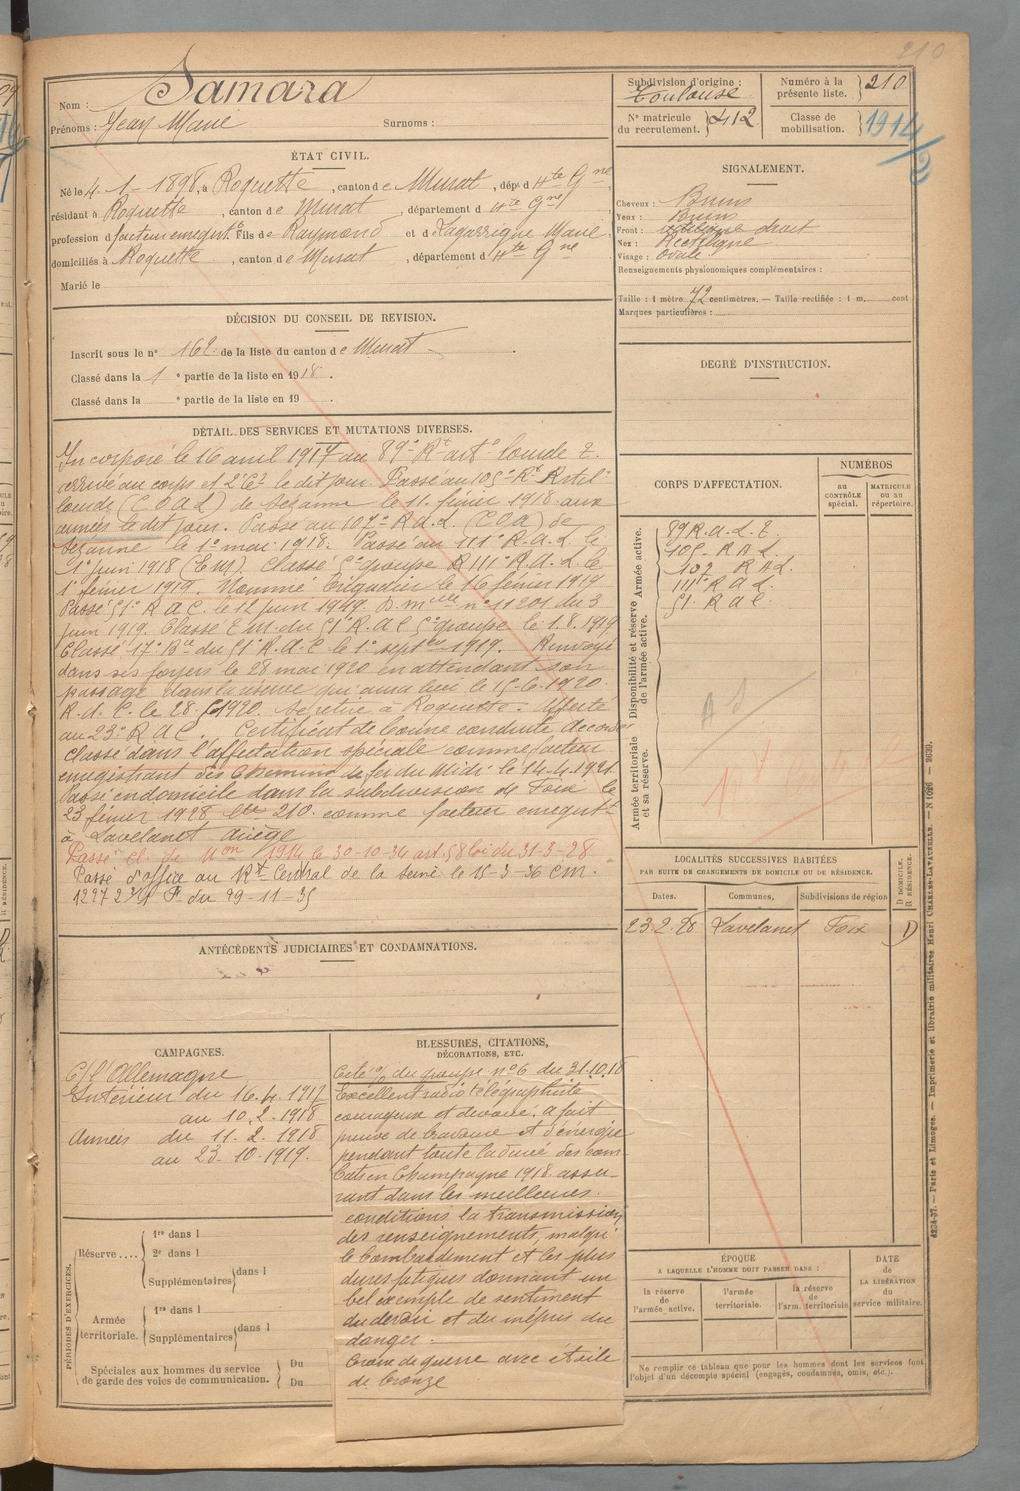 210
Nom : Samara
Prénoms : Jean Marie Surnoms :
Subdivision d'origine : Toulouse
N° matricule du recrutement. 412
Numéro à la présente liste. 210
Classe de mobilisation. 1914/2
ÉTAT CIVIL.
Né le 4-1-1898, à Roquette, canton de Murat, dépt d Hte Gne,
résidant à Roquette, canton de Murat, département d Hte Gne
profession d facteur enregist. Fils de Raymond et de Lagarrigue Marie
domiciliés à Roquette, canton de Murat, département d Hte Gne
Marié le
SIGNALEMENT.
Cheveux : Bruns
Yeux : Bruns
Front : droit
Nez : Rectiligne
Visage : Ovale
Renseignements physionomiques complémentaires :
Taille : 1 mètre 72 centimètres. — Taille rectifiée : 1 m. cent
Marques particulières :
DÉCISION DU CONSEIL DE REVISION.
Inscrit sous le n° 162 de la liste du canton de Murat
Classé dans la 1 e partie de la liste en 1918.
Classé dans la e partie de la liste en 19
DEGRÉ D'INSTRUCTION.
DÉTAIL DES SERVICES ET MUTATIONS DIVERSES.
Incorporé le 16 avril 1917 au 89e Rt artie lourde
arrivé au corps et 2e Cr le dit jour. Passé au 105e Rt Artil
lourde (C O A L) de Sézanne le 11. février 1918 aux
armées le dit jour. Passé au 107e R.A.L (C O A) de
Sézanne le 1er mai 1918. Passé au 111e R.A.L le
1er juin 1918 (E M). Classé 5e groupe R III° R.A.L le
1er février 1919. Nommé Brigadier le 16 février 1919
Passé 51e R A C. le 12 juin 1919. D. mlle n° 11201 du 3
juin 1919. Classé E M. du 51e R.A.C 5e groupe le 1.8.1919
Classé 17e Bie du 51e R.A.C le 1er septbre 1919. Renvoyé
dans ses foyers le 28 mai 1920 en attendant son
passage dans la réserve qui aura lieu le 15-6-1920.
R.d.C. le 28. 1920. Se retire à Roquette. Affecté
au 23e R A C. Certificat de bonne conduite accordé
Classé dans l'affectation spéciale comme facteur
enregistrant des Chemins de fer du Midi le 14.4.1921.
Passé en domicile dans la subdivision de Foix le
23 février 1928 210. comme facteur enregist
à Lavelanet Ariège
Passé cl. de Mon 1914 le 30-10-34 art. 58 loi du 31-3-28
Passé d'office au Rt Central de la Seine le 15-3-36 C M.
1227 du 29-11-35
CORPS D'AFFECTATION.
NUMÉROS
au CONTRÔLE spécial.
MATRICULE ou au répertoire.
Armée active.
89 R.A.L.
105 R A L.
107 R A L.
111e R A L.
51. R A C.
Disponibilité et réserve de l'armée active.
Armée territoriale et sa réserve.
LOCALITÉS SUCCESSIVES HABITÉES
PAR SUITE DE CHANGEMENTS DE DOMICILE OU DE RÉSIDENCE.
Dates. Communes, Subdivisions de région D DOMICILE. R RÉSIDENCE.
23.2.28 Lavelanet Foix D
ANTÉCÉDENTS JUDICIAIRES ET CONDAMNATIONS.
CAMPAGNES.
C/ l'Allemagne
Intérieur du 16.4.1917
au 10.2.1918
Armées du 11.2.1918
au 23.10.1919.
BLESSURES, CITATIONS,
DÉCORATIONS, ETC.
Cité o/ du groupe n° 6 du 31.10.18
Excellent radio télégraphiste
courageux et dévoué, a fait
preuve de bravoure et d'énergie
pendant toute la durée des com
bats en Champagne 1918. assu
rant dans les meilleures
conditions la transmission
des renseignements, malgré
le bombardement et les plus
dures fatigues donnant un
bel exemple de sentiment
du devoir et du mépris du
danger.
Croix de guerre avec étoile
de bronze
PÉRIODES D'EXERCICES.
Réserve.... 1re dans l
2e dans l
Supplémentaires dans l
Armée territoriale. 1re dans l
Supplémentaires dans l
Spéciales aux hommes du service de garde des voies de communication. Du
Du
ÉPOQUE
A LAQUELLE L'HOMME DOIT PASSER DANS :
la réserve de l'armée active.
l'armée territoriale.
la réserve de l'arm. territoriale
DATE de LA LIBÉRATION du service militaire.
Ne remplir ce tableau que pour les hommes dont les services font
l'objet d'un décompte spécial (engagés, condamnés, omis, etc.).
4224-37. — Paris et Limoges. — Imprimerie et librairie militaires Henri CHARLES-LAVAUZELLE.